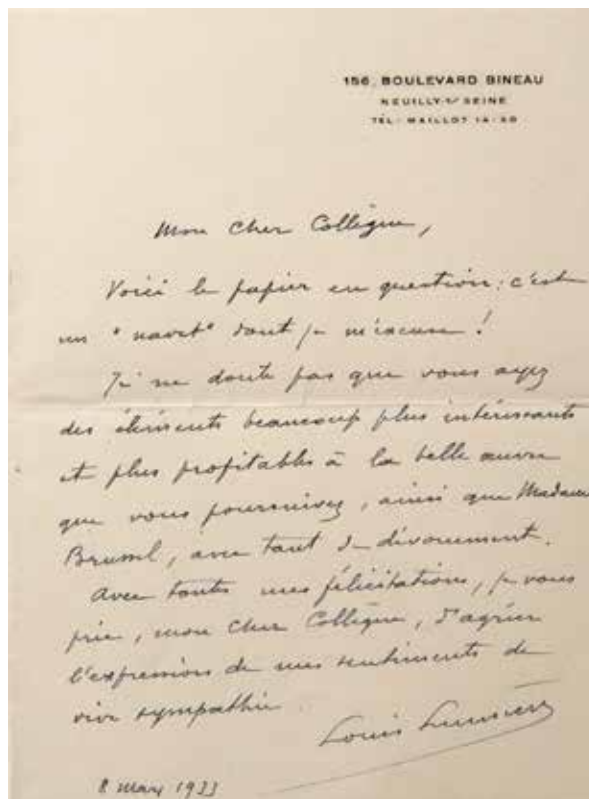 156, BOULEVARD BINEAU
NEUILLY s/ SEINE
TÉL: MAILLOT 14-20
Mon cher Collègue,
Voici le papier en question : c'est
un "navet" dont je m'accuse !
Je ne doute pas que vous ayez
des éléments beaucoup plus intéressants
et plus profitables à la belle œuvre
que vous poursuivez, ainsi que Madame
avec tant de dévouement.
Avec toutes mes félicitations, je vous
prie, mon cher Collègue, d'agréer
l'expression de mes sentiments de
vive sympathie.
Louis Lumière
8 mars 1933